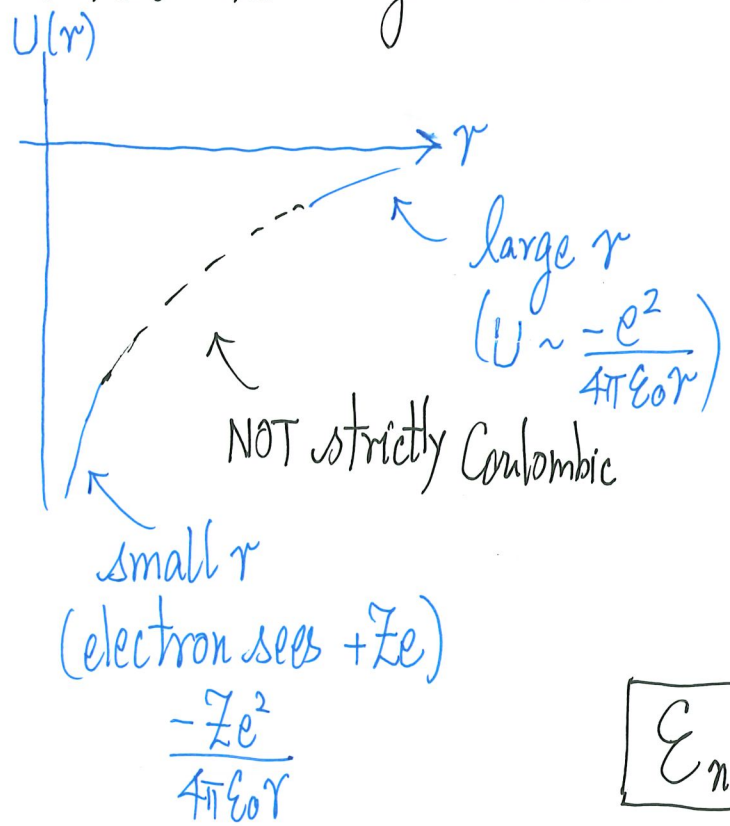 U(r)
r
large r
(U ~ -e²/4πε₀r)
NOT strictly Coulombic
small r
(electron sees +Ze)
-Ze²/4πε₀r
ℰn